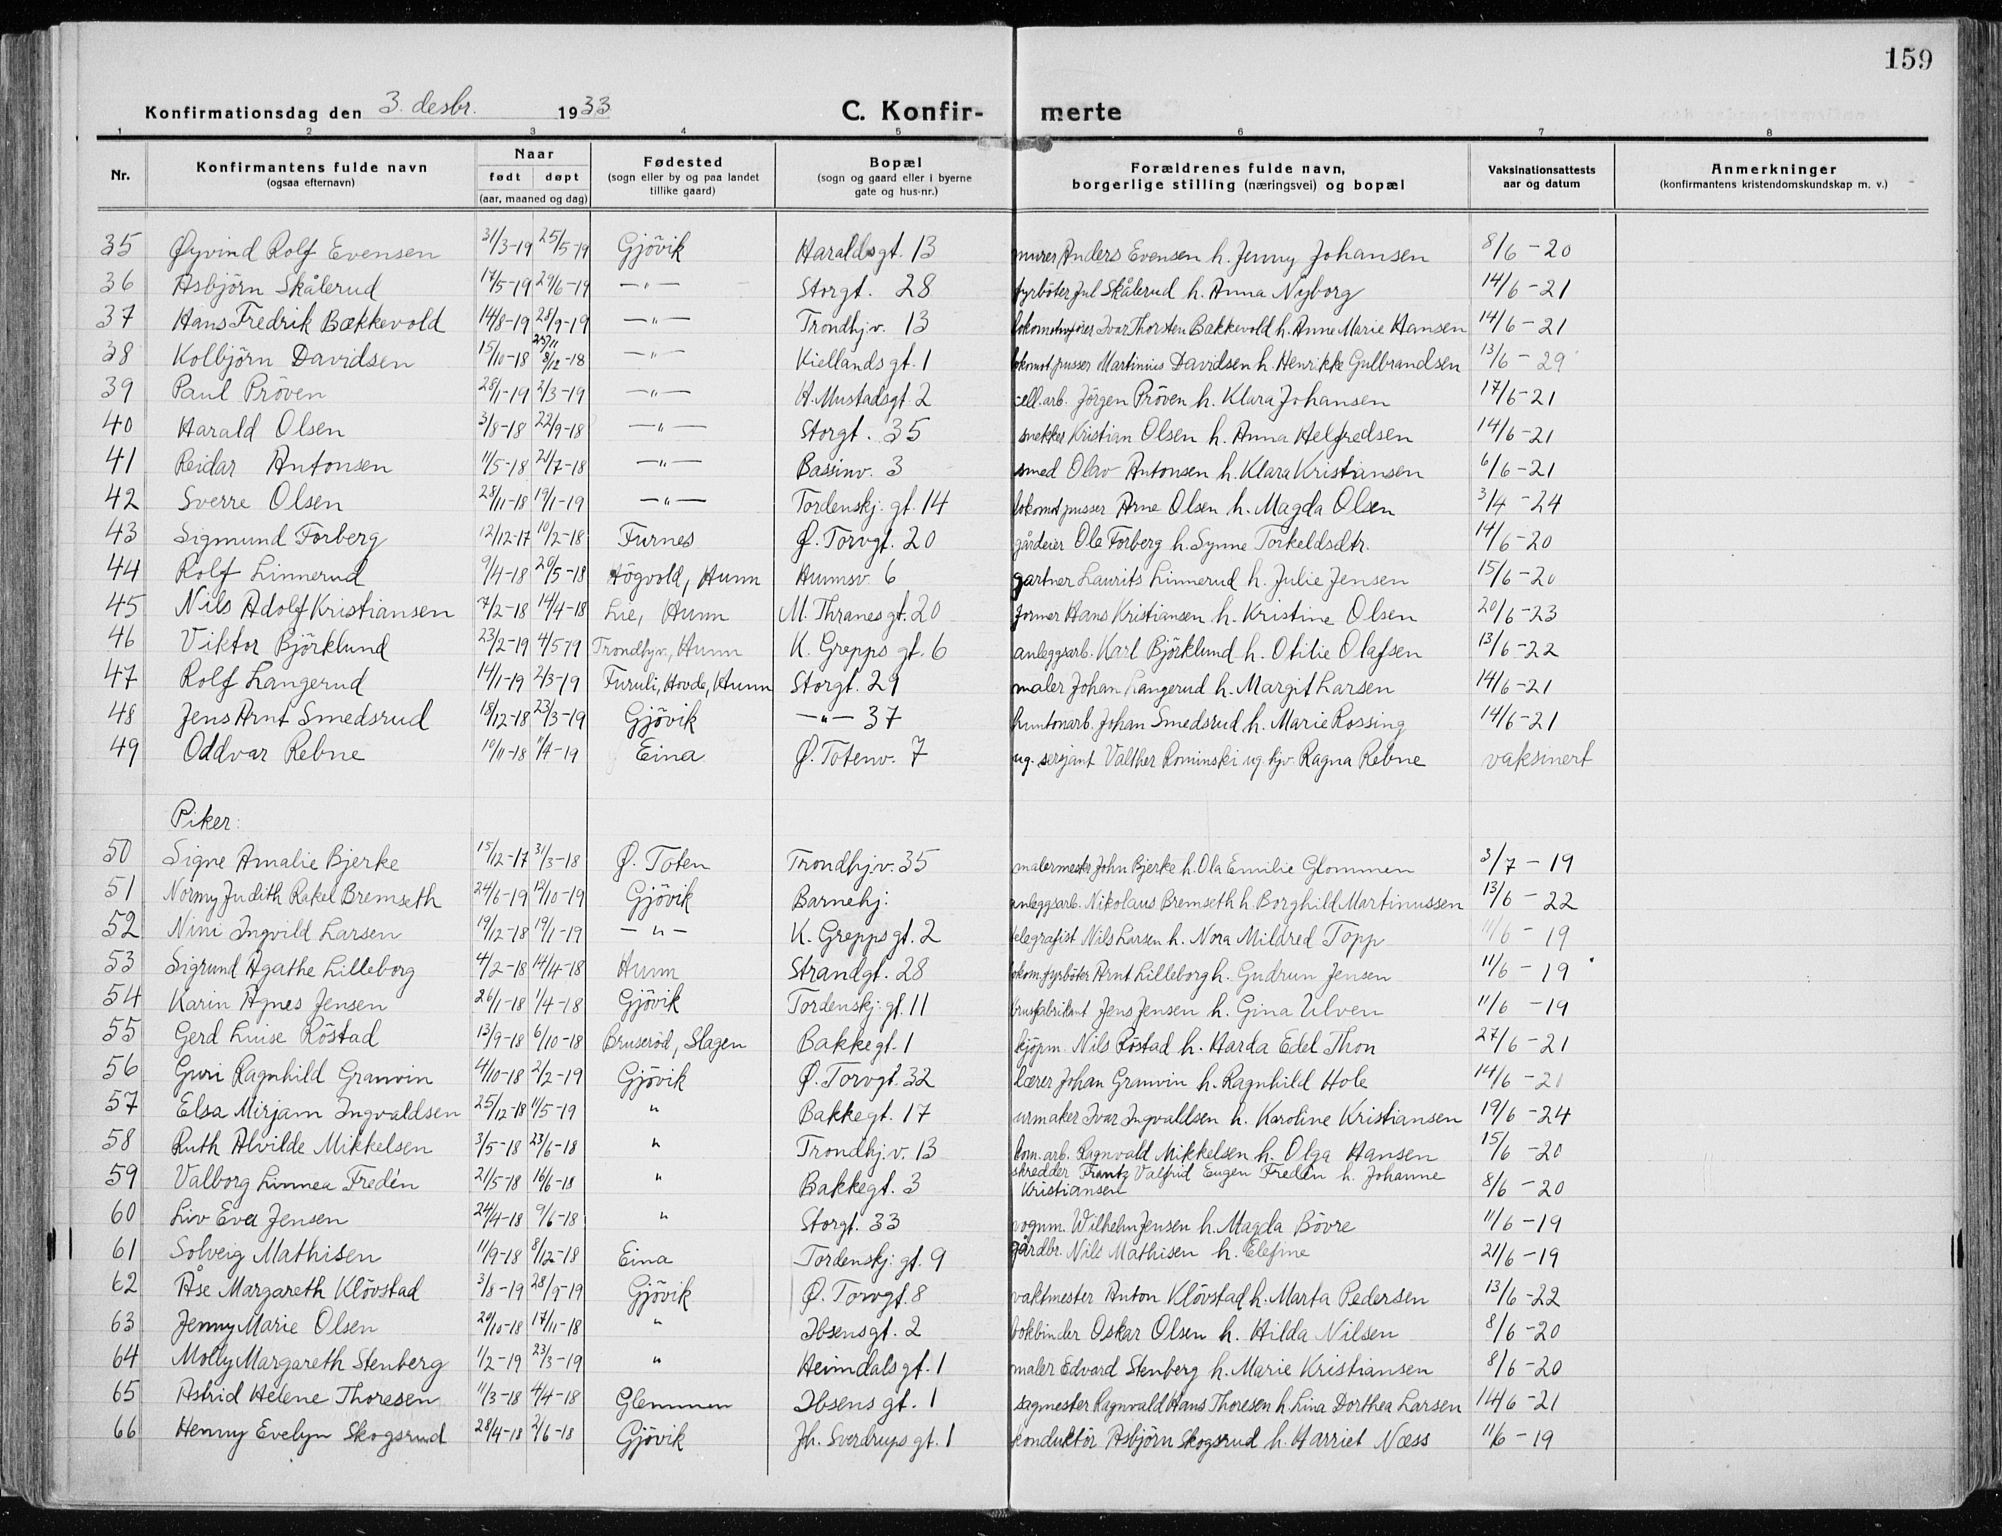 159
Konfirmationsdag den 3. desbr. 1933 C. Konfir- merte
1 2 3 4 5 6 7 8
Nr. Konfirmantens fulde navn (ogsaa efternavn) Naar født døpt (aar, maaned og dag) Fødested (sogn eller by og paa landet tillike gaard) Bopæl (sogn og gaard eller i byerne gate og hus-nr.) Forældrenes fulde navn, borgerlige stilling (næringsvei) og bopæl Vaksinationsattests aar og datum Anmerkninger (konfirmantens kristendomskundskap m. v.)
35 Øyvind Rolf Evensen 31/3-19 25/5-19 Gjövik Haraldsgt. 13 murer Anders Evensen h. Jenny Johansen 8/6-20
36 Asbjörn Skålerud 17/5-19 29/6-19 —"— Storgt. 28 fyrböter Jul Skålerud h. Anna Nyborg 14/6-21
37 Hans Fredrik Bækkevold 14/8-19 28/9-19 —"— Trondhj.v. 13 lokomotivfører Ivar Thorsten Bakkevold h. Anne Marie Hansen 14/6-21
38 Kolbjörn Davidsen 15/10-18 25/11 8/12-18 —"— Kiellandsgt. 1 lokomot.pusser Martinius Davidsen h. Henrikke Gulbrandsen 13/6-29
39 Paul Pröven 28/1-19 2/3-19 —"— H. Mustadsgt. 2 cell.arb. Jörgen Pröven h. Klara Johansen 17/6-21
40 Harald Olsen 3/8-18 22/9-18 —"— Storgt. 35 snekker Kristian Olsen h. Anna Helfredsen 14/6-21
41 Reidar Antonsen 11/5-18 21/7-18 —"— Bassinv. 3 smed Olav Antonsen h. Klara Kristiansen 6/6-21
42 Sverre Olsen 28/11-18 19/1-19 —"— Tordenskj. gt. 14 lokomot.pusser Arne Olsen h. Magda Olsen 3/4-24
43 Sigmund Forberg 12/12-17 10/2-18 Furnes Ø. Torvgt. 20 gårdeier Ole Forberg h. Synne Torkeldsdtr. 14/6-20
44 Rolf Linnerud 9/4-18 20/5-18 Högvold, Hunn Hunnsv. 6 gartner Laurits Linnerud h. Julie Jensen 15/6-20
45 Nils Adolf Kristiansen 7/2-18 14/4-18 Lie, Hunn M. Thranesgt. 20 former Hans Kristiansen h. Kristine Olsen 20/6-23
46 Viktor Björklund 23/2-19 4/5-19 Trondhjv., Hunn K. Grepps gt. 6 anleggsarb. Karl Björklund h. Otilie Olafsen 13/6-22
47 Rolf Langerud 14/1-19 2/3-19 Furuli, Hovde, Hunn Storgt. 29 maler Johan Langerud h. Margit Larsen 14/6-21
48 Jens Arnt Smedsrud 18/12-18 23/3-19 Gjövik —"— 37 huntonarb. Johan Smedsrud h. Marie Rossing 14/6-21
49 Oddvar Rebne 10/11-18 1/4-19 Eina Ø. Totenv. 7 ug. sersjant Valther Rominski ug. tjv. Ragna Rebne vaksinert
Piker:
50 Signe Amalie Bjerke 15/12-17 31/3-18 Ø. Toten Trondhj.v. 35 malermester John Bjerke h. Ola Emilie Glommen 3/7-19
51 Normy Judith Rakel Bremseth 24/6-19 12/10-19 Gjövik Barnehj. anleggsarb. Nikolaus Bremseth h. Borghild Martinussen 13/6-22
52 Nini Ingvild Larsen 19/12-18 19/1-19 —"— K. Greppsgt. 2 telegrafist Nils Larsen h. Nora Mildred Topp 11/6-19
53 Sigrund Agathe Lilleborg 4/2-18 14/4-18 Hunn Strandgt. 28 lokom.fyrböter Arnt Lilleborg h. Gudrun Jensen 11/6-19
54 Karin Agnes Jensen 26/1-18 1/4-18 Gjövik Tordenskj. gt. 11 brusfabrikant Jens Jensen h. Gina Ulven 11/6-19
55 Gerd Luise Röstad 13/9-18 6/10-18 Bruseröd, Slagen Bakkegt. 1 kjöpm. Nils Röstad h. Harda Edel Thon 27/6-21
56 Guri Ragnhild Granvin 4/10-18 2/2-19 Gjövik Ø. Torvgt. 32 lærer Johan Granvin h. Ragnhild Hole 14/6-21
57 Elsa Mirjam Ingvaldsen 25/12-18 11/5-19 " Bakkegt. 17 urmaker Ivar Ingvaldsen h. Karoline Kristiansen 19/6-24
58 Ruth Alvilde Mikkelsen 3/5-18 23/6-18 " Trondhj.v. 13 kom.arb. Ragnvald Mikkelsen h. Olga Hansen 15/6-20
59 Valborg Linnea Fredén 21/5-18 16/6-18 " Bakkegt. 3 skredder Frantz Valfrid Eugen Fredén h. Johanne Kristiansen 8/6-20
60 Liv Eva Jensen 24/4-18 9/6-18 " Storgt. 33 vognm. Wilhelm Jensen h. Magda Bövre 11/6-19
61 Solveig Mathisen 11/9-18 8/12-18 Eina Tordenskj. gt. 9 gårdbr. Nils Mathisen h. Elefine 21/6-19
62 Åse Margareth Klövstad 3/8-19 28/9-19 Gjövik Ø. Torvgt. 8 vaktmester Anton Klövstad h. Marta Pedersen 13/6-22
63 Jenny Marie Olsen 20/10-18 17/11-18 " Ibsensgt. 2 bokbinder Oskar Olsen h. Hilda Nilsen 8/6-20
64 Molly Margareth Stenberg 1/2-19 23/3-19 " Heimdalsgt. 1 maler Edvard Stenberg h. Marie Kristiansen 8/6-20
65 Astrid Helene Thoresen 11/3-18 4/4-18 Glemmen Ibsens gt. 1 sagmester Ragnvald Hans Thoresen h. Lina Dorthea Larsen 14/6-21
66 Henny Evelyn Skogsrud 28/4-18 2/6-18 Gjövik Jh. Sverdrups gt. 1 konduktör Asbjörn Skogsrud h. Harriet Næss 11/6-19